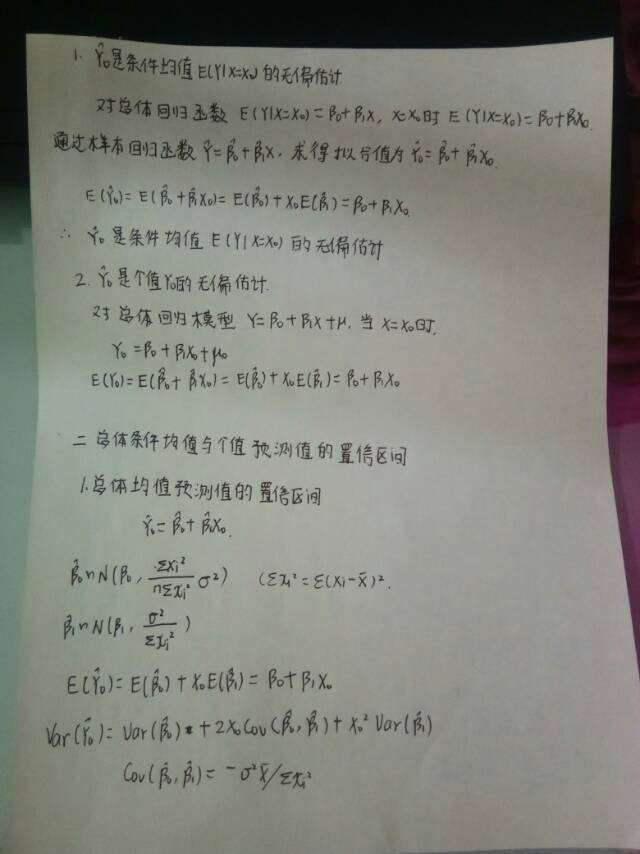 1. Ŷ₀是条件均值E(Y|X=X₀)的无偏估计
对总体回归函数 E(Y|X=X₀)=β₀+β₁X, X=X₀时 E(Y|X=X₀)=β₀+β₁X₀.
通过样本回归函数Ŷ=β̂₀+β̂₁X, 求得拟合值为 Ŷ₀=β̂₀+β̂₁X₀.
E(Ŷ₀)=E(β̂₀+β̂₁X₀)=E(β̂₀)+X₀E(β̂₁)=β₀+β₁X₀.
∴ Ŷ₀是条件均值E(Y|X=X₀)的无偏估计
2. Ŷ₀是个值Y₀的无偏估计.
对总体回归模型 Y=β₀+β₁X+μ, 当X=X₀时.
Y₀=β₀+β₁X₀+μ₀
E(Y₀)=E(β̂₀+β̂₁X₀)=E(β̂₀)+X₀E(β̂₁)=β₀+β₁X₀
二 总体条件均值与个值预测值的置信区间
1.总体均值预测值的置信区间
Ŷ₀=β̂₀+β̂₁X₀.
β̂₀~N(β₀, ΣXᵢ²/nΣxᵢ² σ²) (Σxᵢ²=Σ(Xᵢ-X̄)².
β̂₁~N(β₁, σ²/Σxᵢ²)
E(Ŷ₀)=E(β̂₀)+X₀E(β̂₁)=β₀+β₁X₀
Var(Ŷ₀)=Var(β̂₀)+2X₀Cov(β̂₀,β̂₁)+X₀²Var(β̂₁)
Cov(β̂₀,β̂₁)=-σ²X̄/Σxᵢ²